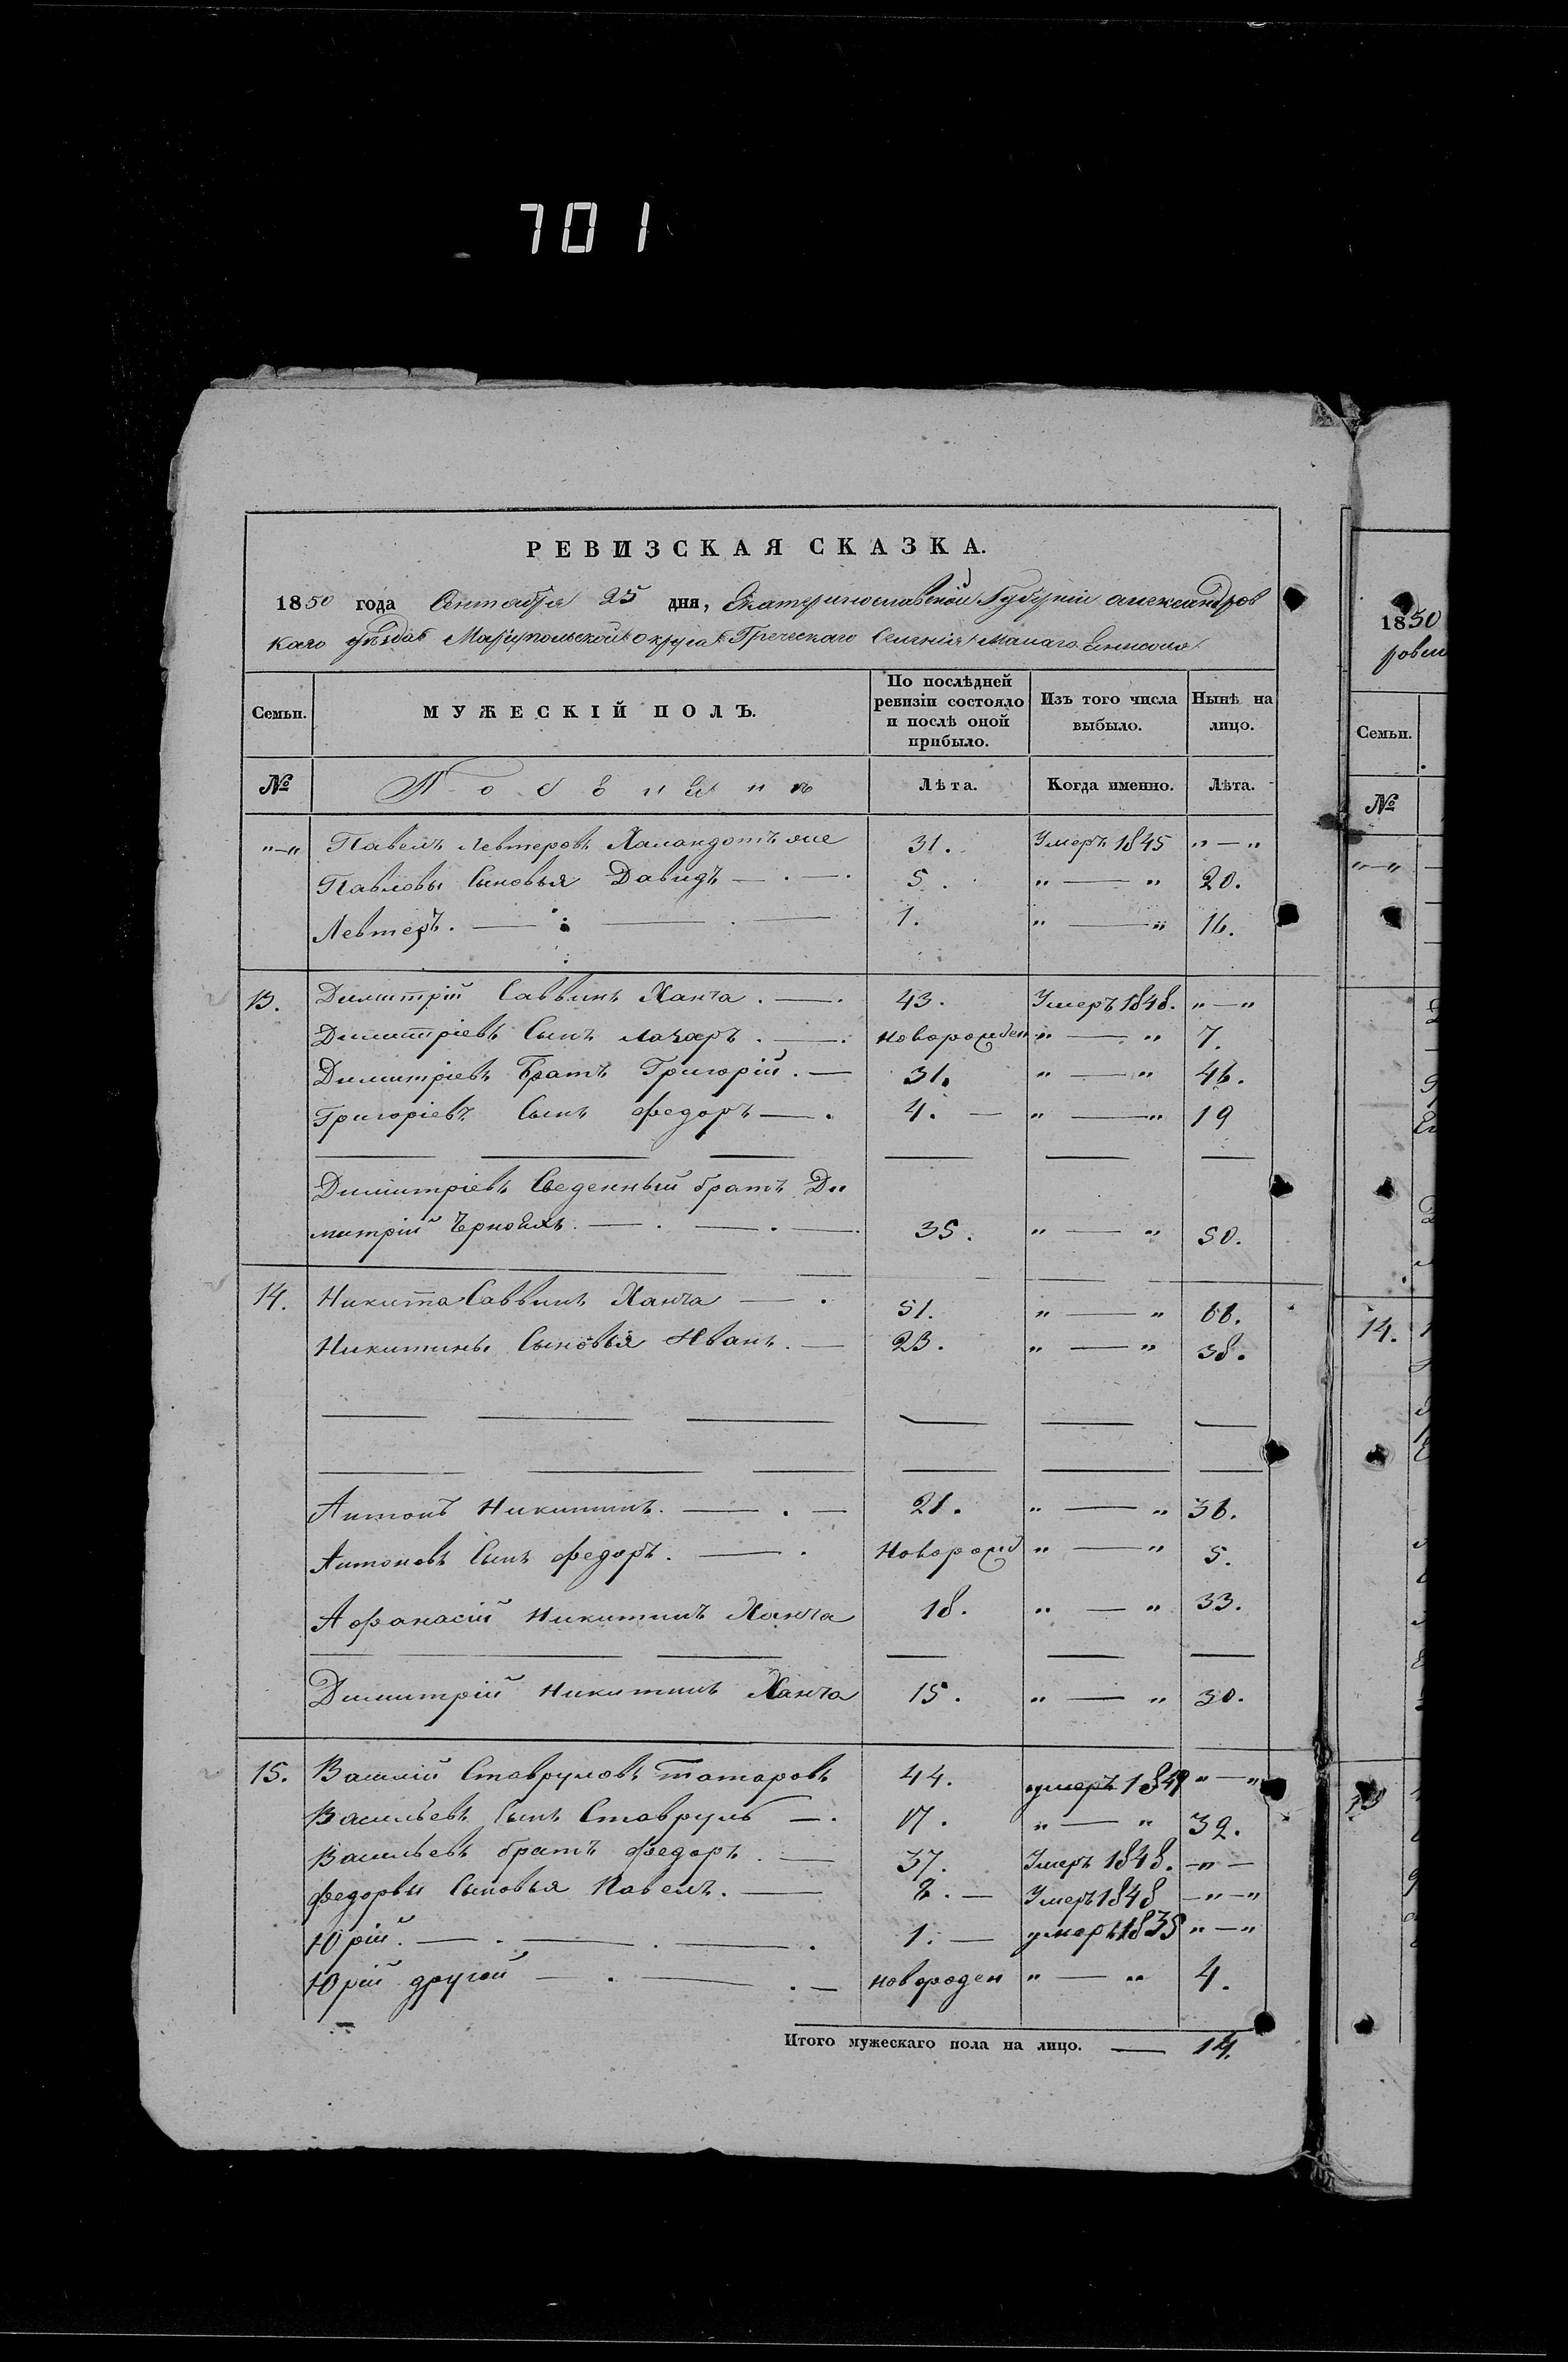 701
РЕВИЗСКАЯ СКАЗКА.
1850 года Сентября 25 дня, Екатеринославской Губернии александров
каго уѣзда Мариупольскаго округа Греческаго Селенія Малаго Енисоля
Семьи. МУЖЕСКІЙ ПОЛЪ. По послѣдней ревизіи состояло и послѣ оной прибыло. Изъ того числа выбыло. Нынѣ на лицо.
№ Лѣта. Когда именно. Лѣта.
"—" Павелъ Левтеровъ 31. Умеръ 1845 "—"
Павловы Сыновья Давидъ — . — . 5. " — " 20.
Левтеръ. — 1. " — " 16.
13. Димитрій Саввинъ Ханча . — . 43. Умеръ 1848. "—"
Димитріевъ Сынъ Лазарь . — . новорожден " — " 7.
Димитріевъ Братъ Григорій . — 31. " — " 46.
Григоріевъ Сынъ Федоръ — . 4. — " — " 19
Димитріевъ Сведенный братъ Ди
митрій — . — . — . 35. " — " 50.
14. Никита Саввинъ Ханча — . 51. " — " 66.
Никитины Сыновья Иванъ . — 23. " — " 38.
Антонъ Никитинъ. — . — 21. " — " 36.
Антоновъ Сынъ Федоръ. — . Новорожд " — " 5.
Афанасій Никитинъ Ханча 18. " — " 33.
Димитрій Никитинъ Ханча 15. " — " 30.
15. Василій Ставруловъ Татаровъ 44. умеръ 1849 "—"
Васильевъ Сынъ Ставрулъ — . 17. " — " 32.
Васильевъ братъ Федоръ . — 37. Умеръ 1848. —"—
Федоровы Сыновья Павелъ. — 2. — Умеръ 1848 —"—"
Юрій. — . — . — . 1. — умеръ 1835 "—"
Юрій другой — . — . — новороден " — " 4.
Итого мужескаго пола на лицо. — 14.
1850
Семьи.
№
"—"
14.